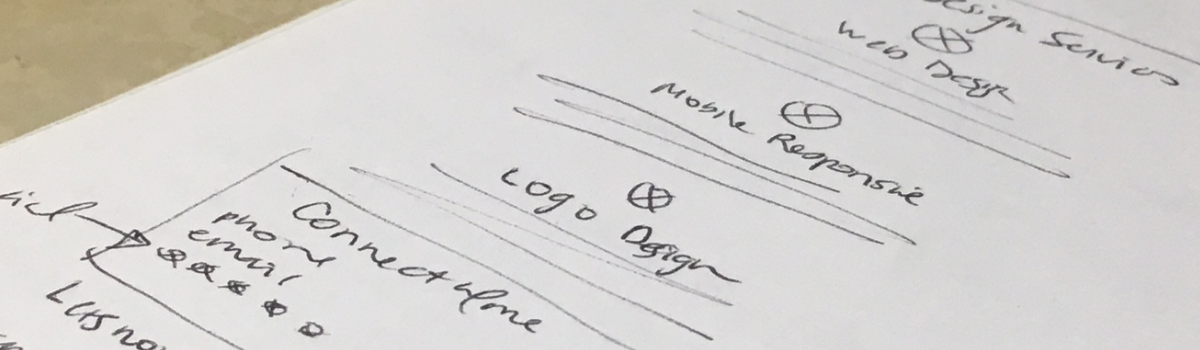 Design Services
Web Design
Mobile Responsive
Logo Design
Connect
phone
email